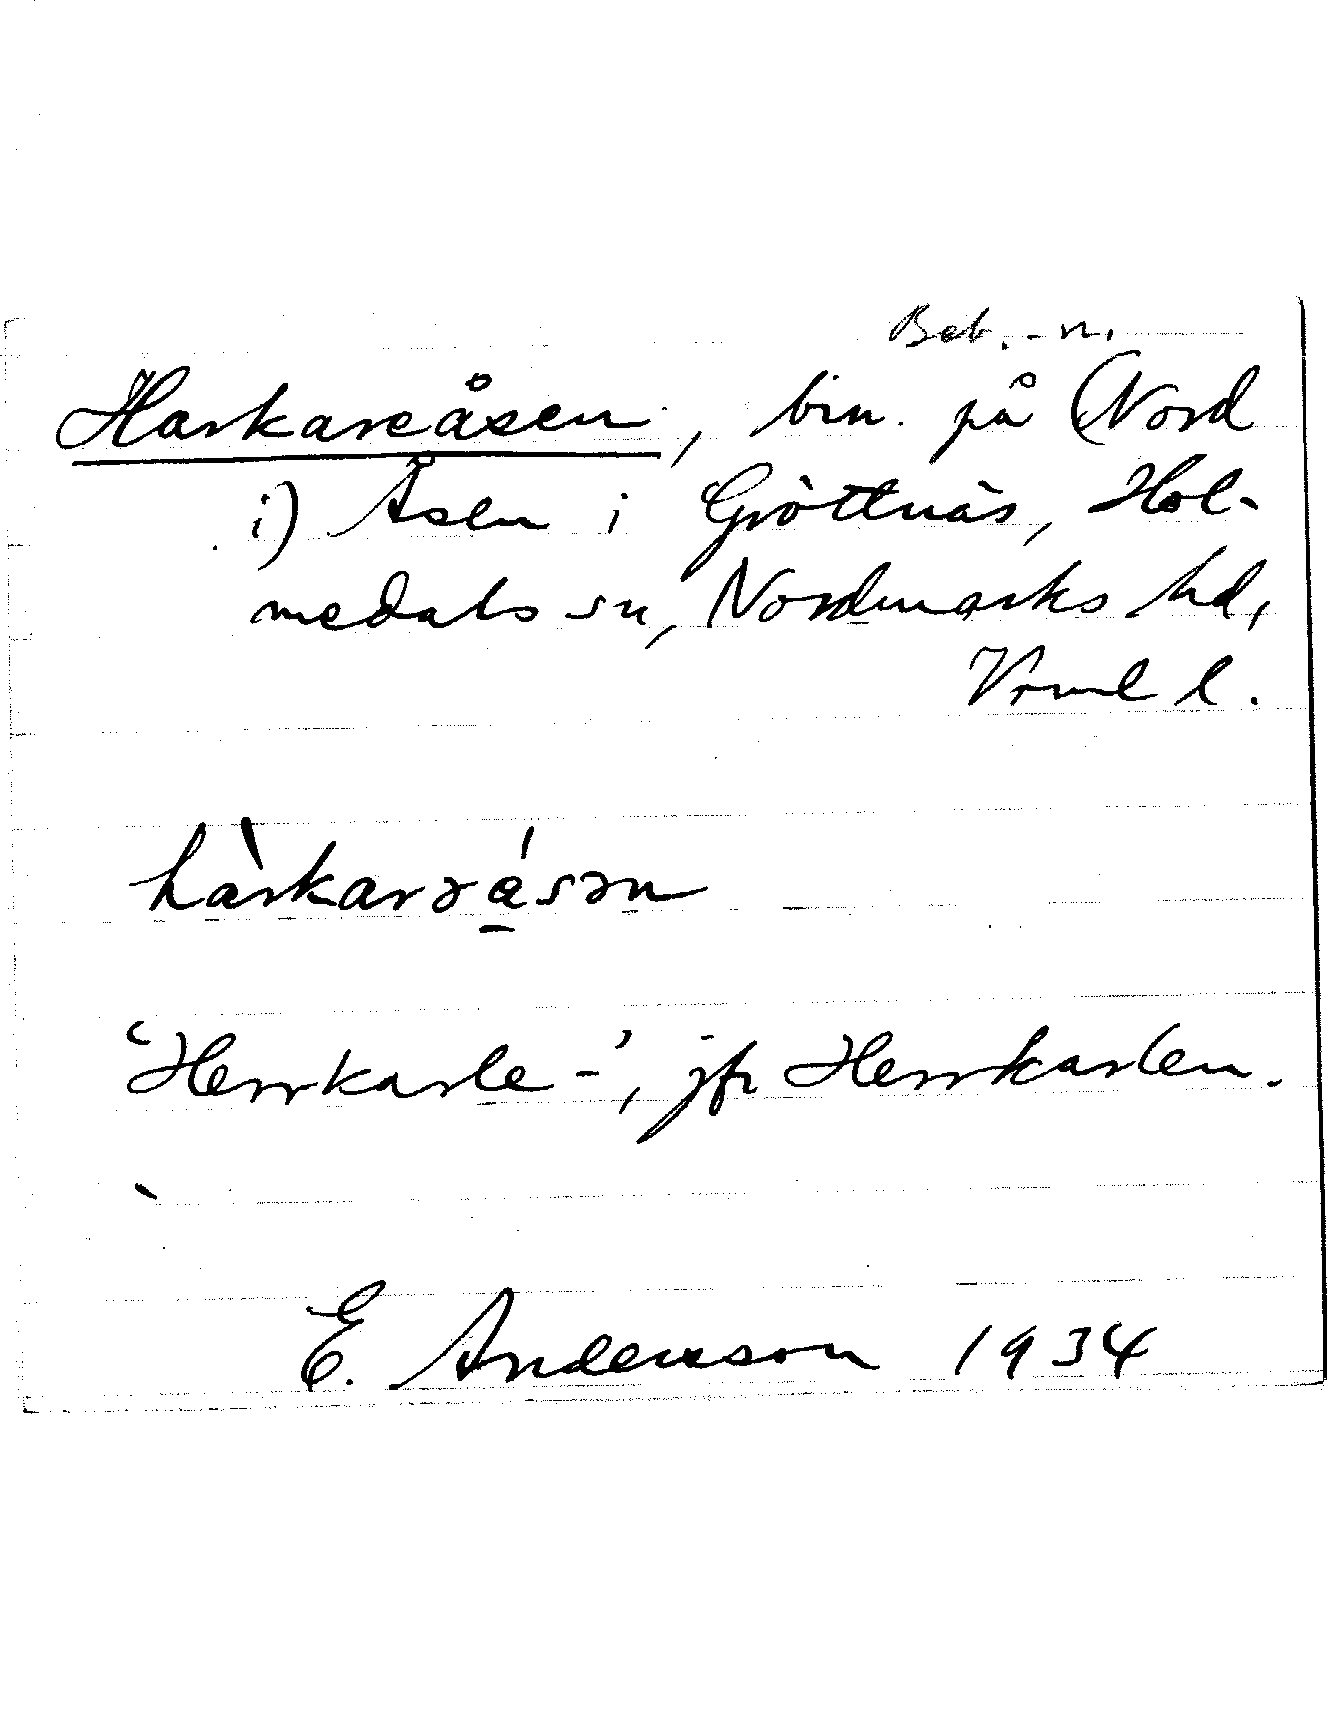 Beb.-n.
Harkareåsen, bin. på (Nord
i) Åsen i Gröttnäs, Hol-
medals sn, Nordmarks hd,
Vrml l.
hàrkarəásən
‘Herrkarle-’, jfr Herrkarlen.
E. Andersson 1934